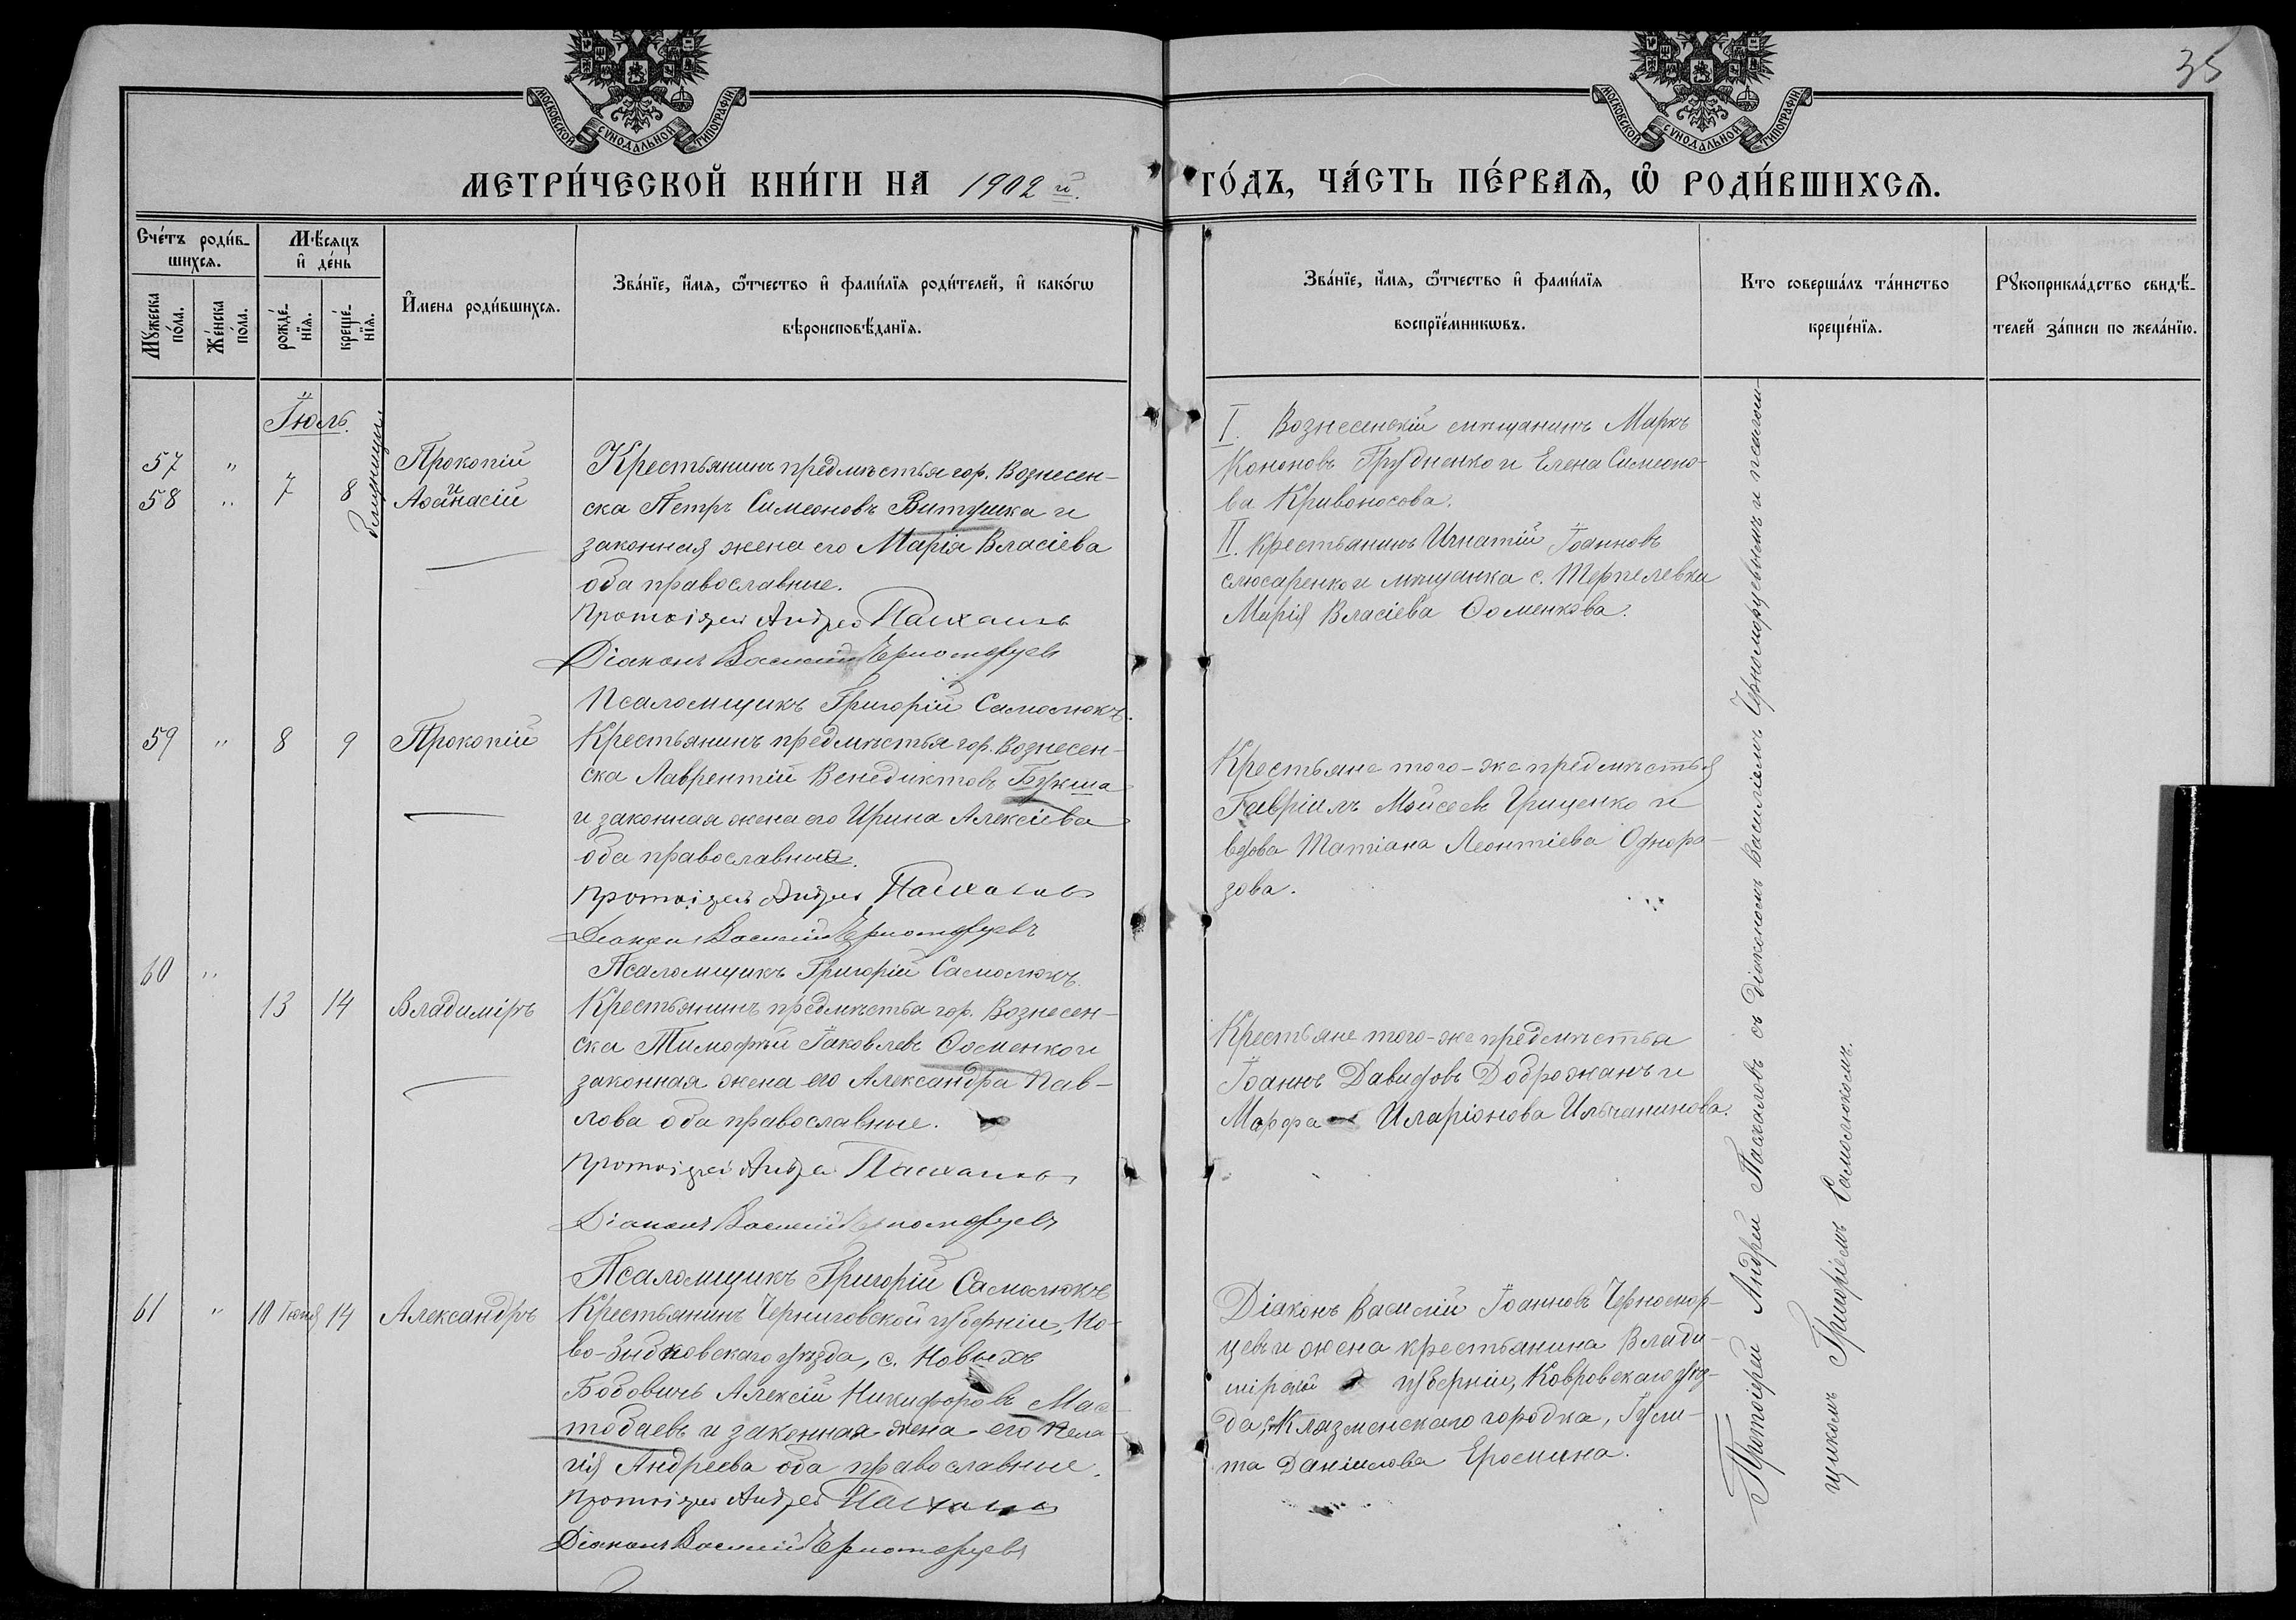 35
МОСКОВСКОЙ СѴНОДАЛЬНОЙ ТИПОГРАФІИ
МОСКОВСКОЙ СѴНОДАЛЬНОЙ ТИПОГРАФІИ
МЕТРИ́ЧЕСКОЙ КНИ́ГИ НА 1902 й. ГО́ДЪ, ЧА́СТЬ ПЕ́РВАѦ, Ѡ҆ РОДИ́ВШИХСѦ.
Сче́тъ роди́в-
шихсѧ.
Мꙋ́жеска по́ла.
Же́нска по́ла.
Мѣ́сѧцъ
и҆ де́нь
рожде́-
нїѧ.
креще́-
нїѧ.
И҆мена роди́вшихсѧ.
Зва́нїе, и҆́мѧ, ѻ҆́тчество и҆ фами́лїѧ роди́телей, и҆ како́гѡ
вѣроисповѣ́данїѧ.
Зва́нїе, и҆́мѧ, ѻ҆́тчество и҆ фами́лїѧ
воспрїе́мникѡвъ.
Кто соверша́лъ та́инство
креще́нїѧ.
Рꙋкоприкла́дство свидѣ́-
телей за́писи по жела́нїю.
Іюль.
близнецы
57 " Прокопій
58 " 7 8 Аѳанасій
и
Крестьянинъ предмѣстья гор. Вознесен-
ска Петръ Симеоновъ Витушка и
законная жена его Марія Власіева
оба православные.
Протоіерей Андрей Пасхаловъ
Діаконъ Василій Черноморцевъ
Псаломщикъ Григорій Самолюкъ.
I. Вознесенскій мѣщанинъ Маркъ
Кононовъ Грудненко и Елена Симеоно-
ва Кривоносова.
II. Крестьянинъ Игнатій Іоанновъ
слюсаренко и мѣщанка с. Терпелевки
Марія Власіева Ѳоменкова.
59 " 8 9 Прокопій
Крестьянинъ предмѣстья гор. Вознесен-
ска Лаврентій Венедиктовъ Букша
и законная жена его Ирина Алексіева
оба православные.
Протоіерей Андрей Пасхаловъ
Діаконъ Василій Черноморцевъ
Псаломщикъ Григорій Самолюкъ.
Крестьяне того-же предмѣстья
Гавріилъ Мойсеевъ Грищенко и
вдова Татіана Леонтіева Однора-
зова.
60 "
13 14 Владиміръ
Крестьянинъ предмѣстья гор. Вознесен-
ска Тимофѣй Іаковлевъ Ѳоменко и
законная жена его Александра Пав-
лова оба православные.
Протоіерей Андрей Пасхаловъ
Діаконъ Василій Черноморцевъ
Псаломщикъ Григорій Самолюкъ
Крестьяне того-же предмѣстья
Іоаннъ Давидовъ Доброжанъ и
Марфа Иларіонова Ильчанинова.
61 " 10 Іюня 14 Александръ
Крестьянинъ Черниговской губерніи, Но-
во-Зыбковскаго уѣзда, с. Новыхъ
Бобовичъ Алексій Никифоровъ Мас-
тобаевъ и законная жена его Пела-
гія Андреева оба православные.
Протоіерей Андрей Пасхаловъ
Діаконъ Василій Черноморцевъ
Діаконъ Василій Іоанновъ Черномор-
цевъ и жена крестьянина Влади-
мірской губерніи, Ковровскаго уѣз-
да, с. Клязменскаго городка, Іули-
та Даніилова Еромина.
Протоіерей Андрей Пасхаловъ съ діакономъ Василіемъ Черноморцевымъ и псалом-
щикомъ Григоріемъ Самолюкомъ.